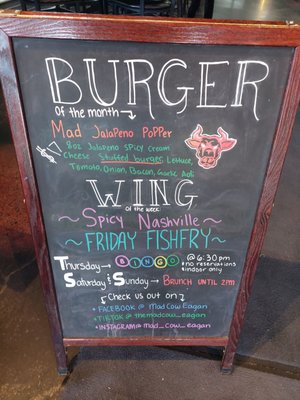 BURGER
Of the month
Mad Jalapeno Popper
$ 8oz Jalapeno Spicy Cream
Cheese Stuffed burger, Lettuce,
Tomato, Onion, Bacon, Garlic Aoli
WING
of the week
~ Spicy Nashville ~
~ FRIDAY FISHFRY ~
Thursday → BINGO @ 6:30 pm
* no reservations
* indoor only
Saturday & Sunday → Brunch until 2pm
Check us out on
• FACEBOOK @ Mad Cow Eagan
• TIKTOK @ themadcow_eagan
• INSTAGRAM @ mad_cow_eagan